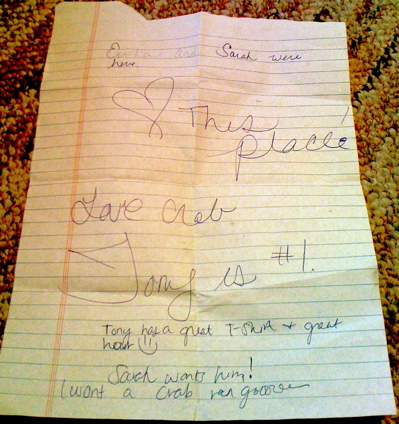 Sarah were
here
This
place!
Love crab
Tony is #1.
Tony has a great T-Shirt + great
heart
Sarah wants him!
I want a crab